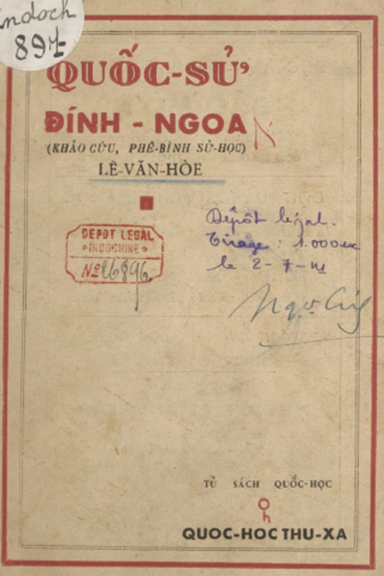 Indoch
897
QUỐC-SỬ
ĐÍNH - NGOA
(KHẢO CỨU, PHÊ-BÌNH SỬ-HỌC)
LÊ-VĂN-HÒE
Dépôt légal.
Tirage : 1.000 ex
le 2-7-41
DEPOT LEGAL
INDOCHINE
Nº 16896
TỦ SÁCH QUỐC-HỌC
QUOC-HOC THU-XA